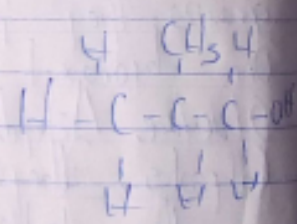 H CH3 H
H - C - C - C - OH
H H H